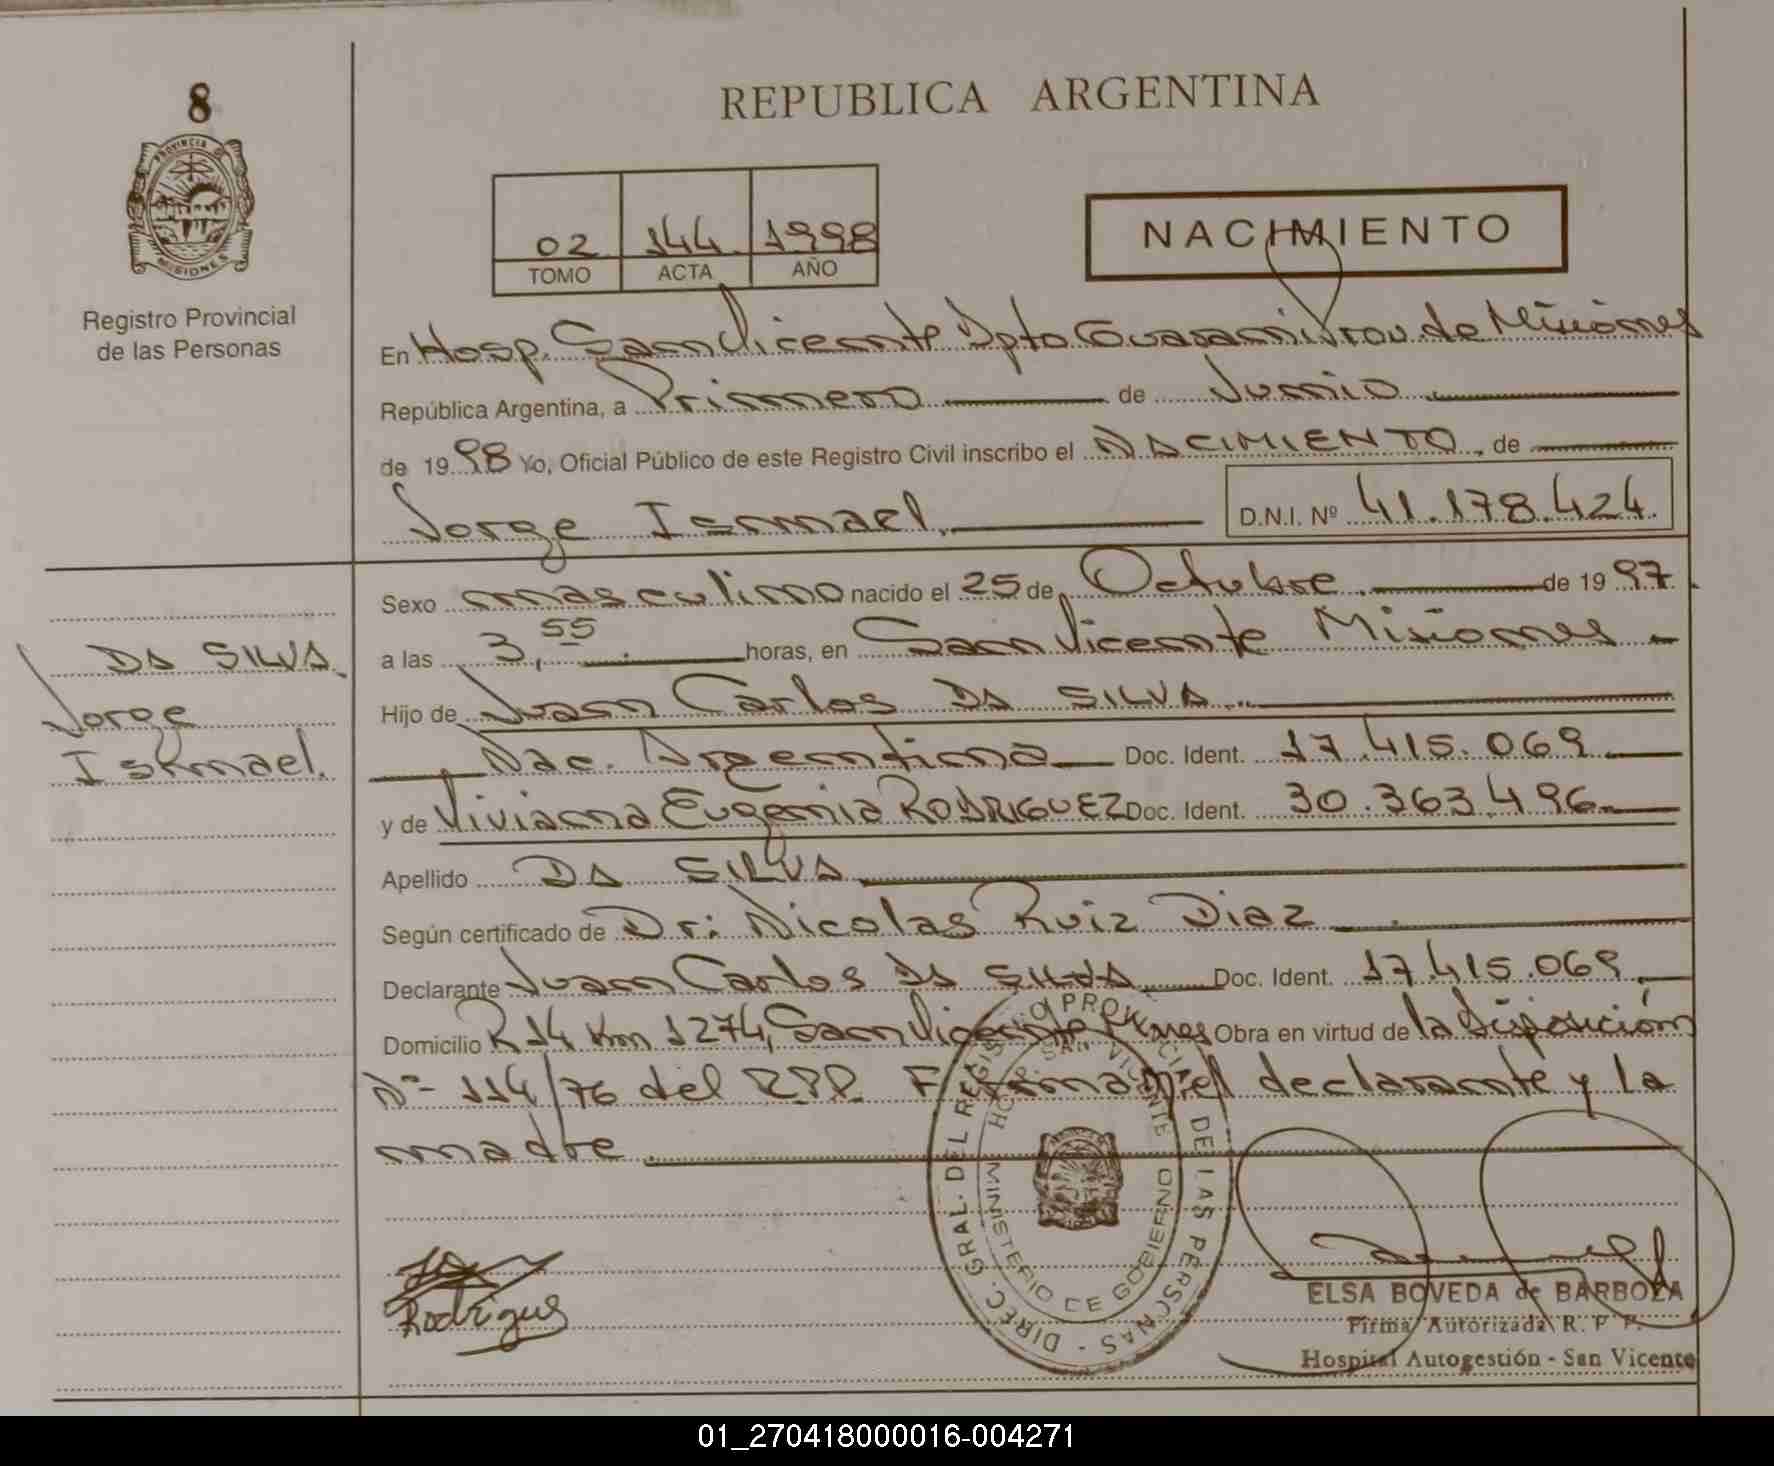 8
PROVINCIA DE
MISIONES
Registro Provincial
de las Personas
REPUBLICA ARGENTINA
02 144 1998
TOMO ACTA AÑO
NACIMIENTO
En Hosp. San Vicente Dpto Guarani Prov. de Misiones
República Argentina, a Primero de Junio
de 1998 Yo, Oficial Público de este Registro Civil inscribo el NACIMIENTO, de
Jorge Ismael. D.N.I. Nº 41.178.424.
Sexo masculino nacido el 25 de Octubre. de 1997.
DA SILVA.
a las 3,55 horas, en San Vicente Misiones
Jorge
Hijo de Juan Carlos DA SILVA
Ismael.
Nac. Argentina Doc. Ident. 17.415.069
y de Viviana Eugenia RODRIGUEZ Doc. Ident. 30.363.496
Apellido DA SILVA
Según certificado de Dr: Nicolas Ruiz Diaz
Declarante Juan Carlos DA SILVA Doc. Ident. 17.415.069
Domicilio R 14 Km 1274, San Vicente Mnes Obra en virtud de la disposición
Nº 114/76 del R.P.P. Firman el declarante y la
madre
DIREC. GRAL. DEL REGISTRO PROVINCIAL DE LAS PERSONAS -
HOSP. SAN VICENTE
MINISTERIO DE GOBIERNO
Rodrigus
ELSA BOVEDA de BARBOZA
Firma Autorizada R. P. P.
Hospital Autogestión - San Vicente
01_270418000016-004271